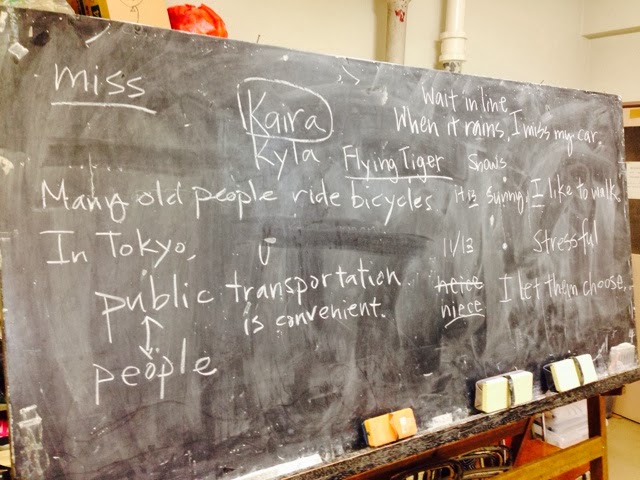 miss
Kaira
Kyla
Flying Tiger
Wait in line
When it rains, I miss my car.
Shows
Many old people ride bicycles
sunny, I like to walk
In Tokyo,
11/13
Stressful
public transportation
is convenient.
people
niece
I let them choose.